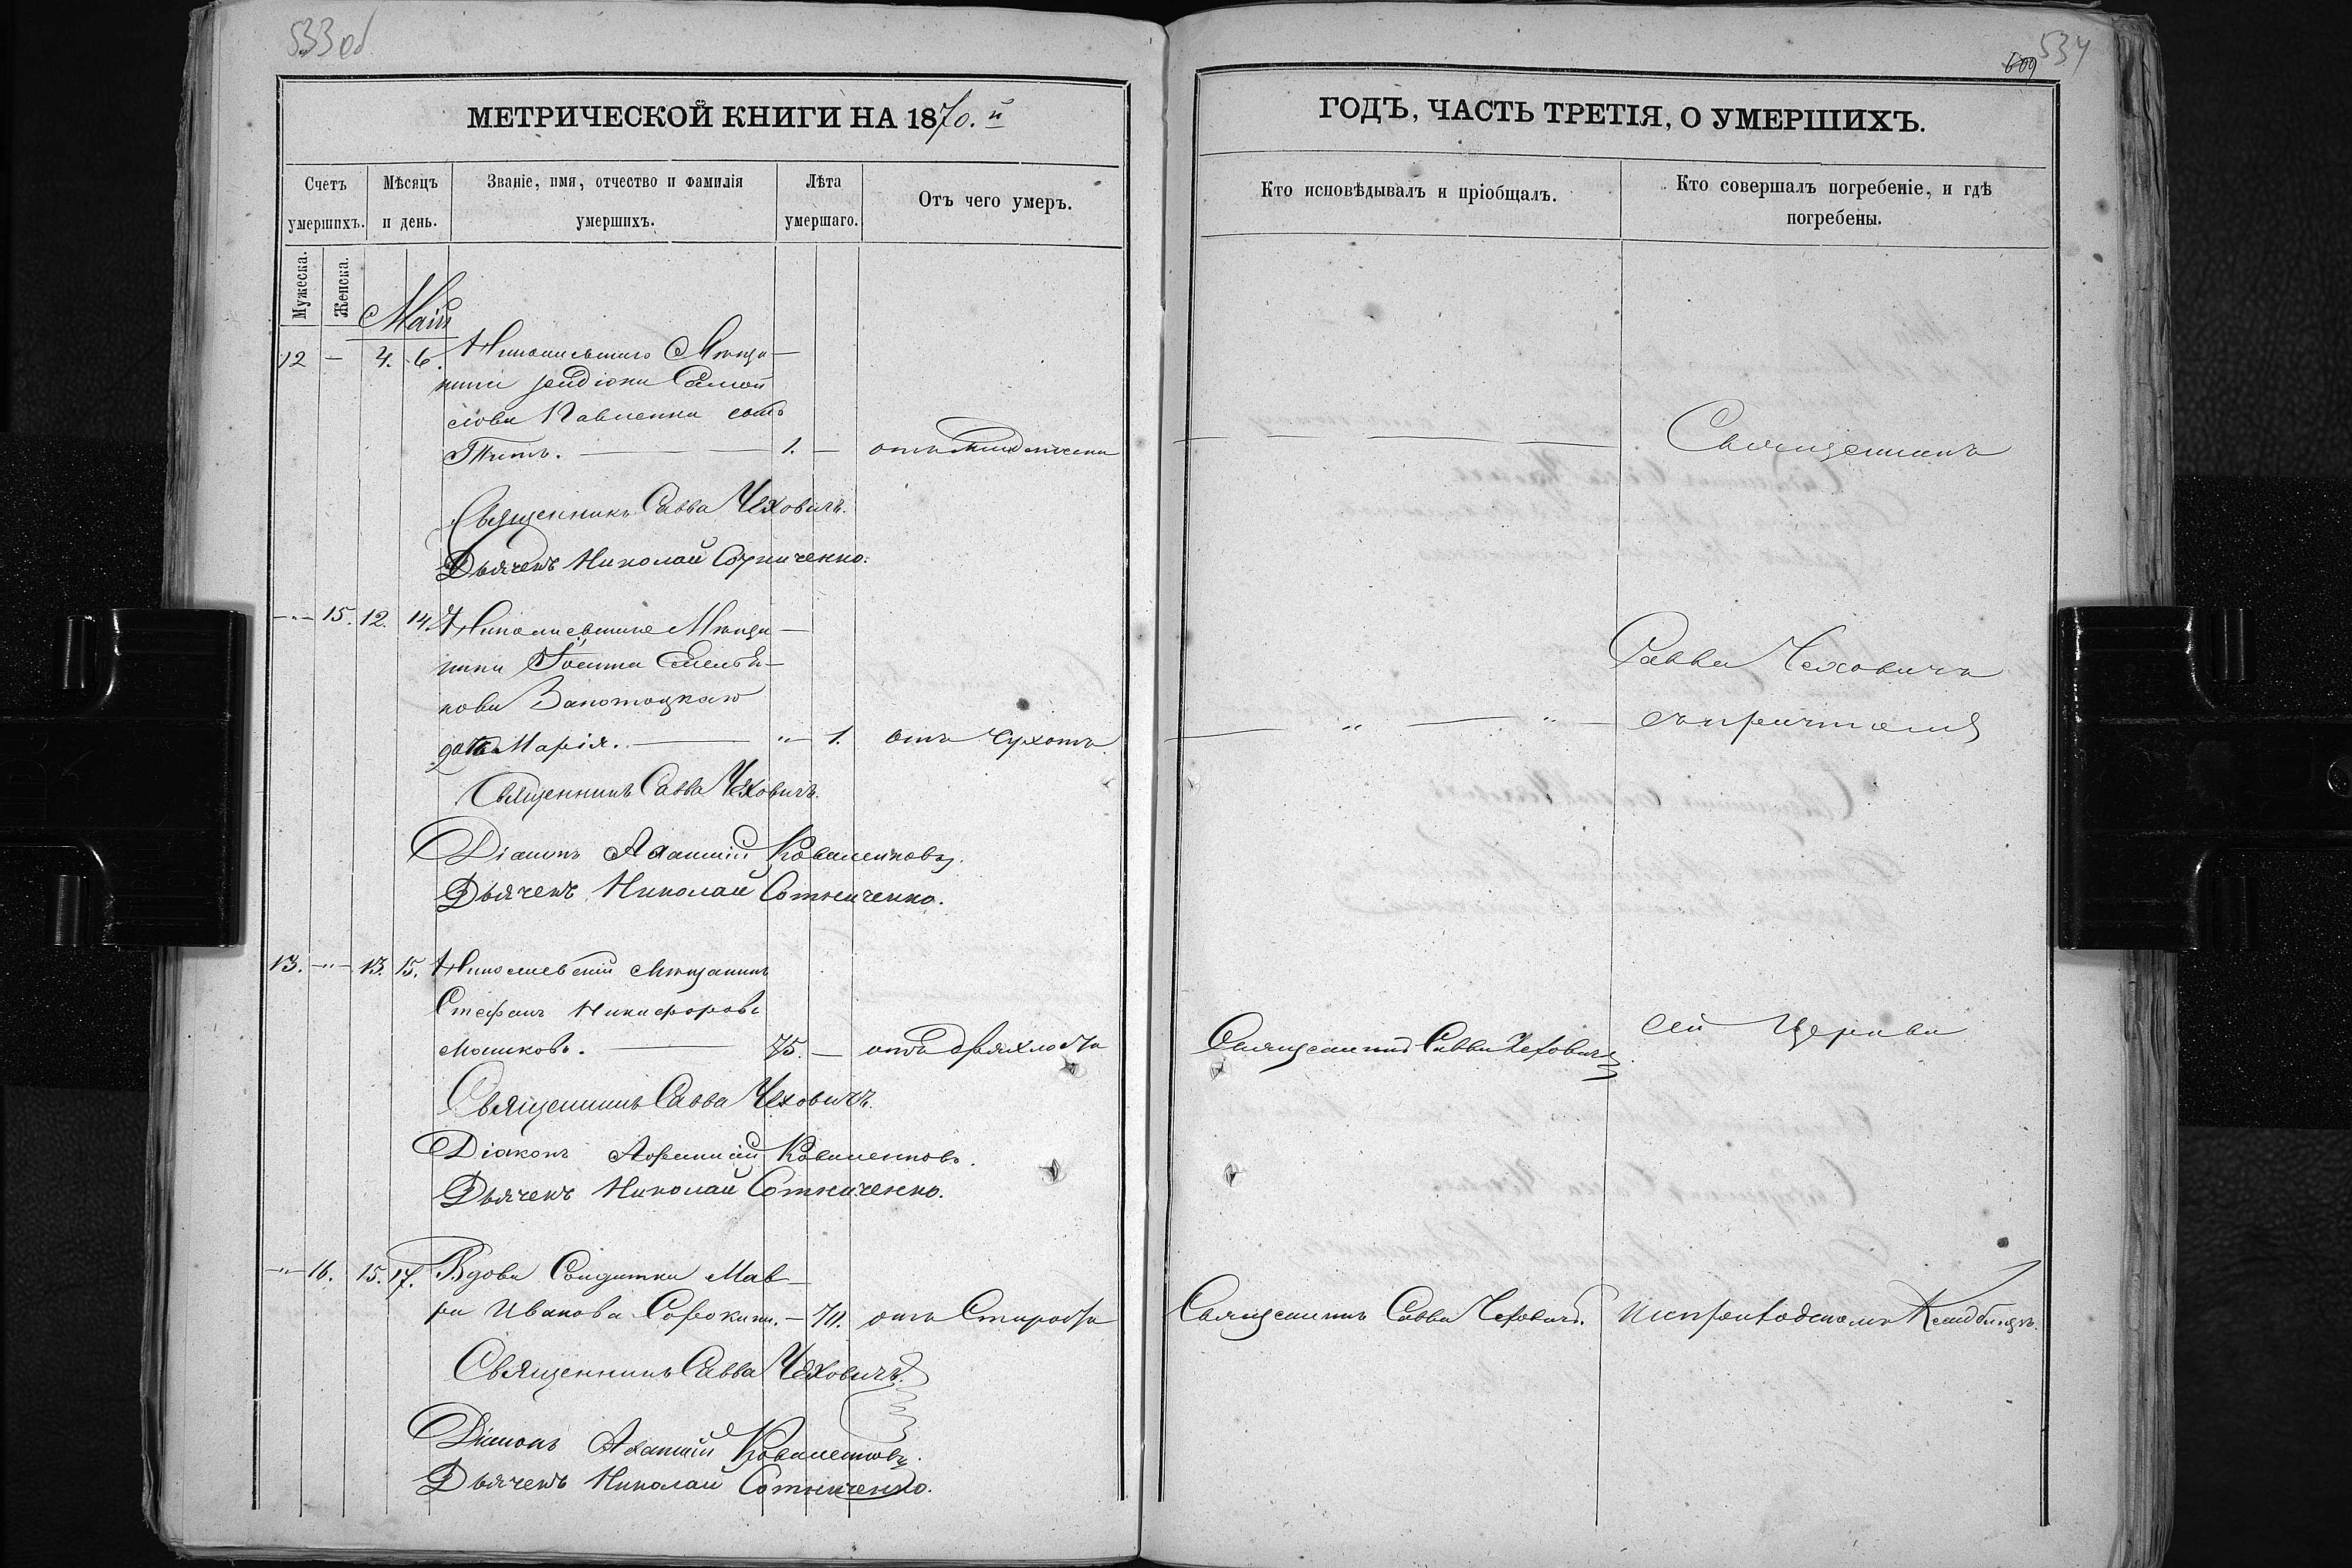 533 об
МЕТРИЧЕСКОЙ КНИГИ НА 1870.й
Счетъ умершихъ.
Мѣсяцъ и день.
Званіе, имя, отчество и фамилія умершихъ.
Лѣта умершаго.
Отъ чего умеръ.
Мужеска.
Женска.
Май
12 — 4. 6. Николаевскаго Мѣща-
нина
слова Павленка сынъ
Титъ. — 1. — отъ
Священникъ Савва Чеховичъ.
Дьячекъ Николай Сотниченко.
—"— 15. 12. 14. Николаевскаго Мѣща-
нина Іоанна Емелья-
нова Запотоцкаго
дочь Марія. — " 1. отъ Сухотъ
Священникъ Савва Чеховичъ.
Діаконъ Аѳанасій Коваленковъ.
Дьячекъ Николай Сотниченко.
13. —"— 13. 15. Николаевскій Мѣщанинъ
Стефанъ Никифоровъ
Мошковъ. — 75. — отъ дряхлости
Священникъ Савва Чеховичъ.
Діаконъ Аѳанасій Коваленковъ.
Дьячекъ Николай Сотниченко.
—"— 16. 15. 17. Вдова Солдатка Мав-
ра Иванова Сорокина. — 70. отъ Старости
Священникъ Савва Чеховичъ.
Діаконъ Аѳанасій Коваленковъ.
Дьячекъ Николай Сотниченко.
609 534
ГОДЪ, ЧАСТЬ ТРЕТІЯ, О УМЕРШИХЪ.
Кто исповѣдывалъ и пріобщалъ.
Кто совершалъ погребеніе, и гдѣ погребены.
Священникъ
Савва Чеховичъ
— " — " — съ причтомъ
Священникъ Савва Чеховичъ.
сей Церкви
Священникъ Савва Чеховичъ.
на приходскомъ Кладбищѣ.